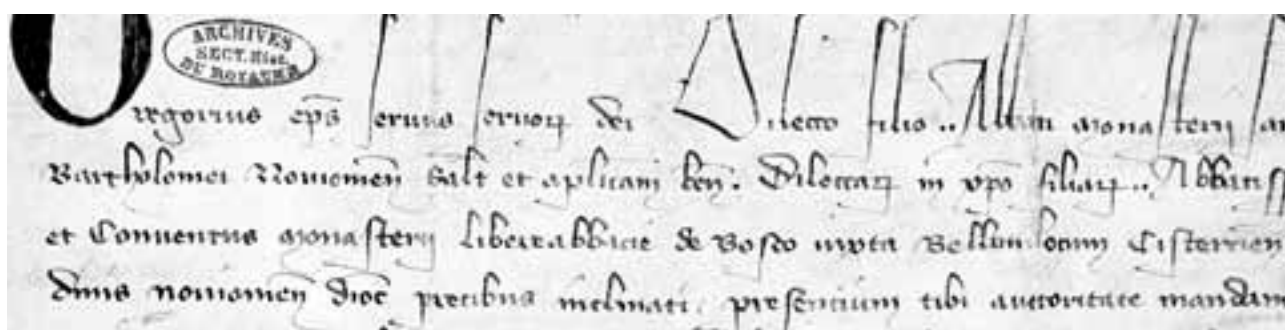 ARCHIVES
SECT. Hist.
DU ROYAUME
Gregorius ep̄s seruus seruoꝝ dei Dilecto filio .. Abbati monasterij
Bartholomei Nouiomen̄ Salt̄ et ap̄licam ben̄. Dilectaꝝ in xp̄o filiaꝝ ..
et Conuentus monasterij libereabbacie de Bosco iuxta Bellumlocum Cistercien̄
Nouiomen̄ dioc̄ precibus inclinati. presencium tibi auctoritate